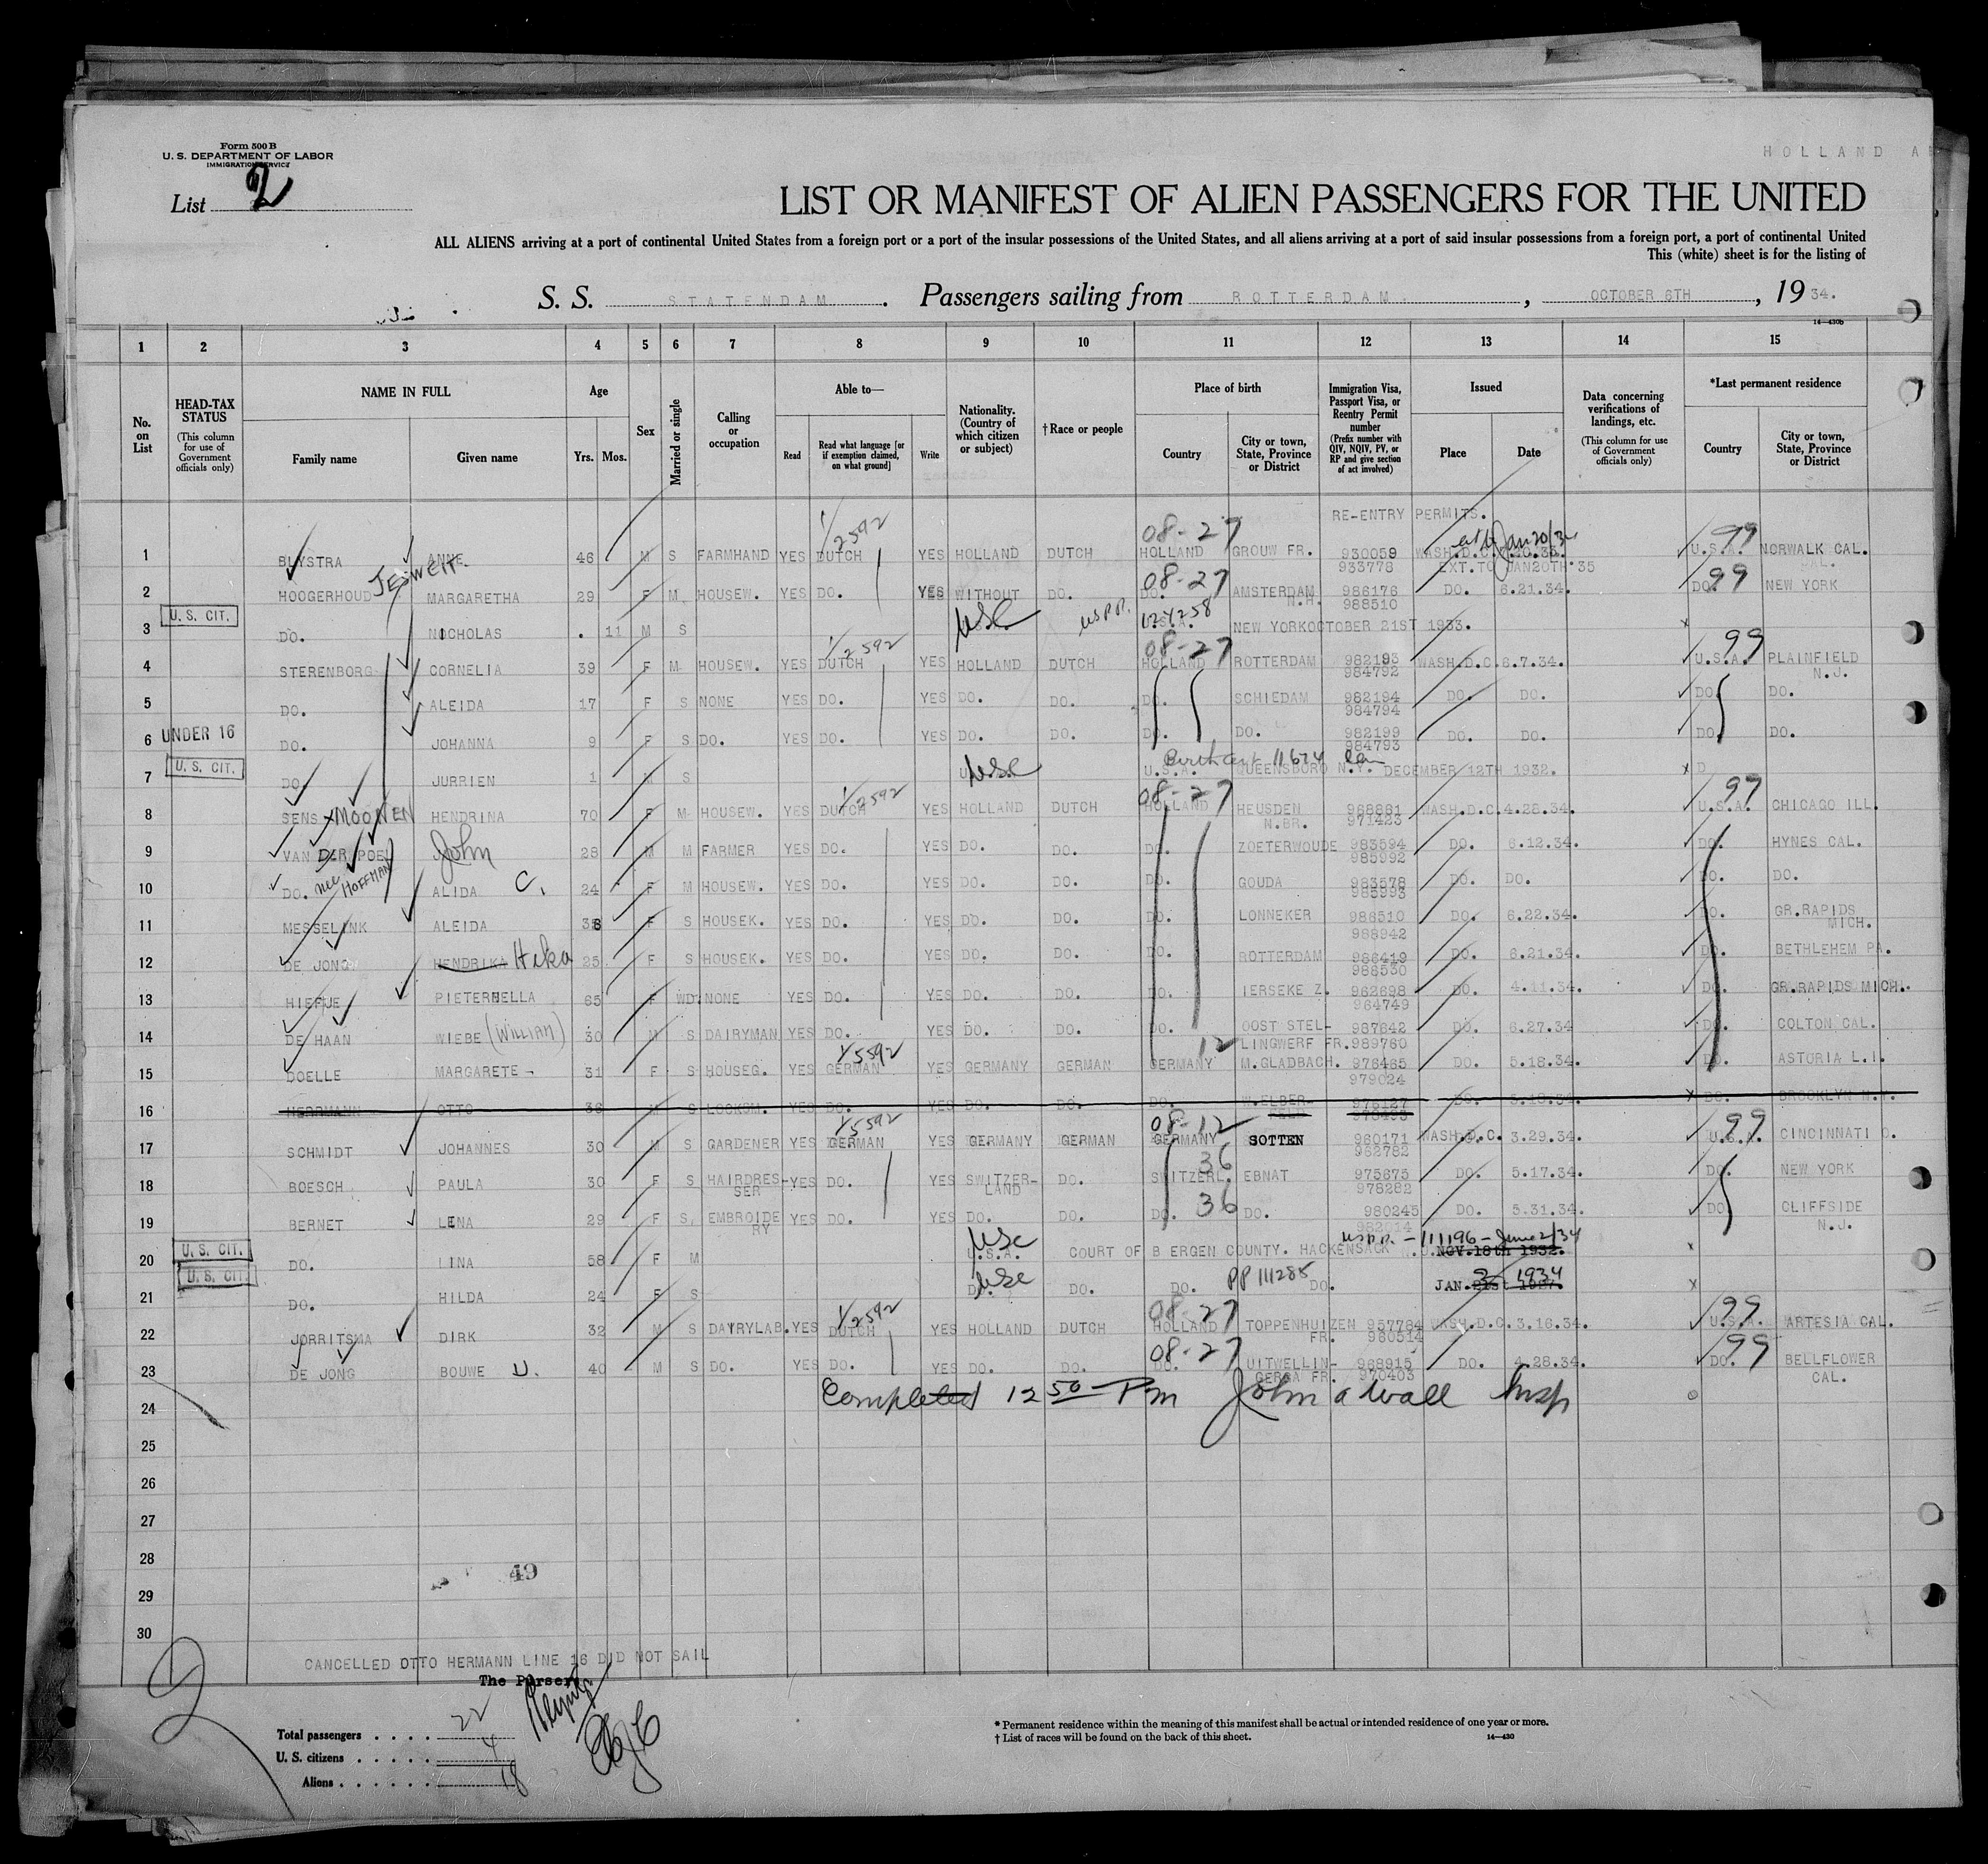 Form 500 B
U. S. DEPARTMENT OF LABOR
IMMIGRATION SERVICE
HOLLAND A
List 2
LIST OR MANIFEST OF ALIEN PASSENGERS FOR THE UNITED
ALL ALIENS arriving at a port of continental United States from a foreign port or a port of the insular possessions of the United States, and all aliens arriving at a port of said insular possessions from a foreign port, a port of continental United
This (white) sheet is for the listing of
S. S. STATENDAM. Passengers sailing from ROTTERDAM. , OCTOBER 6TH , 19 34.
14—430b
1 2 3 4 5 6 7 8 9 10 11 12 13 14 15
No. on List
HEAD-TAX STATUS (This column for use of Government officials only)
NAME IN FULL Family name Given name
Age Yrs. Mos.
Sex
Married or single
Calling or occupation
Able to— Read Read what language [or if exemption claimed, on what ground] Write
Nationality. (Country of which citizen or subject)
†Race or people
Place of birth Country City or town, State, Province or District
Immigration Visa, Passport Visa, or Reentry Permit number (Prefix number with QIV, NQIV, PV, or RP and give section of act involved)
Issued Place Date
Data concerning verifications of landings, etc. (This column for use of Government officials only)
*Last permanent residence Country City or town, State, Province or District
RE-ENTRY PERMITS.
1/2592 08-27 99
1 BLYSTRA ANNE 46 M S FARMHAND YES DUTCH YES HOLLAND DUTCH HOLLAND GROUW FR. 930059 WASH.D.C. U.S.A. NORWALK CAL.
933778 EXT.TO JAN20TH'35
JESWEIT 08-27 99
2 HOOGERHOUD MARGARETHA 29 F M HOUSEW. YES DO. YES WITHOUT DO. DO. AMSTERDAM N.H. 986176 DO. 6.21.34. DO. NEW YORK
988510
U. S. CIT. USC USPP. 124258
3 DO. NICHOLAS 11 M S U.S.A. NEW YORK OCTOBER 21ST 1933. x
1/2592 08-27 99
4 STERENBORG CORNELIA 39 F M HOUSEW. YES DUTCH YES HOLLAND DUTCH HOLLAND ROTTERDAM 982193 WASH.D.C. 6.7.34. U.S.A. PLAINFIELD N.J.
984792
5 DO. ALEIDA 17 F S NONE YES DO. YES DO. DO. DO. SCHIEDAM 982194 DO. DO. DO. DO.
984794
6 UNDER 16 DO. JOHANNA 9 F S DO. YES DO. YES DO. DO. DO. DO. 982199 DO. DO. DO. DO.
984793
U. S. CIT. USC Birth cert 11674
7 DO. JURRIEN 1 M S U.S.A. QUEENSBORO N.Y. DECEMBER 12TH 1932. x D
1/2592 08-27 99
8 SENS x MOONEN HENDRINA 70 F M HOUSEW. YES DUTCH YES HOLLAND DUTCH HOLLAND HEUSDEN N.BR. 968881 WASH.D.C. 4.28.34. U.S.A. CHICAGO ILL.
971423
9 VAN DER POEL John 28 M M FARMER YES DO. YES DO. DO. DO. ZOETERWOUDE 983594 DO. 6.12.34. DO. HYNES CAL.
985992
10 DO. nee HOFFMAN ALIDA C. 24 F M HOUSEW. YES DO. YES DO. DO. DO. GOUDA 983578 DO. DO. DO. DO.
985993
11 MESSELINK ALEIDA F S HOUSEK. YES DO. YES DO. DO. DO. LONNEKER 986510 DO. 6.22.34. DO. GR.RAPIDS MICH.
988942
12 DE JONG HENDRIKA Hika 25 F S HOUSEK. YES DO. YES DO. DO. DO. ROTTERDAM 986419 DO. 6.21.34. DO. BETHLEHEM PA.
988530
13 HIEFJE PIETERNELLA 65 F WD. NONE YES DO. YES DO. DO. DO. IERSEKE Z. 962698 DO. 4.11.34. DO. GR.RAPIDS MICH.
964749
14 DE HAAN WIEBE (WILLIAM) 30 M S DAIRYMAN YES DO. YES DO. DO. DO. OOST STEL- 987642 DO. 6.27.34 DO. COLTON CAL.
LINGWERF FR. 989760
1/5592 12
15 DOELLE MARGARETE 31 F S HOUSEG. YES GERMAN YES GERMANY GERMAN GERMANY M.GLADBACH. 976465 DO. 5.18.34. DO. ASTORIA L.I.
979024
16 HERRMANN OTTO 36 M S LOCKSM. YES DO. YES DO. DO. DO. W.ELBER- 976127 DO. 5.18.34. x DO. BROOKLYN N.Y.
1/5592 08-12 99
17 SCHMIDT JOHANNES 30 M S GARDENER YES GERMAN YES GERMANY GERMAN GERMANY SOTTEN 960171 WASH.D.C. 3.29.34. U.S.A. CINCINNATI O.
962782
36
18 BOESCH PAULA 30 F S HAIRDRES- YES DO. YES SWITZER- DO. SWITZERL. EBNAT 975675 DO. 5.17.34. DO. NEW YORK
SER LAND 978282
19 BERNET LENA 29 F S. EMBROIDE YES DO. YES DO. DO. DO. 36 DO. 980245 DO. 5.31.34. DO. CLIFFSIDE
RY 982014 N.J.
U. S. CIT. USC USPP. - 111196 - June 2/34
20 DO. LINA 58 F M U.S.A. COURT OF BERGEN COUNTY. HACKENSACK NOV.18th 1932. x
U. S. CIT. USC PP 111285 3 1934
21 DO. HILDA 24 F S DO. DO. DO. DO. JAN. x
1/2592 08-27 99
22 JORRITSMA DIRK 32 M S DAYRYLAB. YES DUTCH YES HOLLAND DUTCH HOLLAND TOPPENHUIZEN FR. 957784 WASH.D.C. 3.16.34. U.S.A. ARTESIA CAL.
960514
08-27 99
23 DE JONG BOUWE U. 40 M S DO. YES DO. YES DO. DO. DO. UITWELLIN- 968915 DO. 4.28.34. DO. BELLFLOWER
GERGA FR. 970403 CAL.
24 Completed 12 50 Pm John a Wall Insp
25
26
27
28
49
29
30
CANCELLED OTTO HERMANN LINE 16 DID NOT SAIL
The Purser
Total passengers . . . . 22
U. S. citizens . . . . . 4
Aliens . . . . . . 18
* Permanent residence within the meaning of this manifest shall be actual or intended residence of one year or more.
† List of races will be found on the back of this sheet.
14—430
2